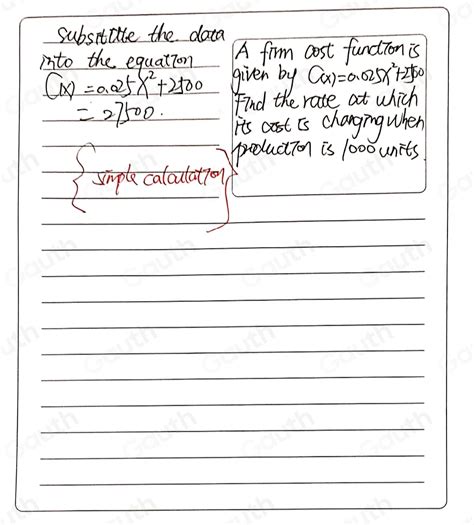 Subsititute the data
into the equation
C(x) = 0.025x²+2500
= 27500.
simple calculation
A firm cost function is
given by C(x)=0.025x²+2500
Find the rate at which
its cost is changing when
production is 1000 units.
Gauth